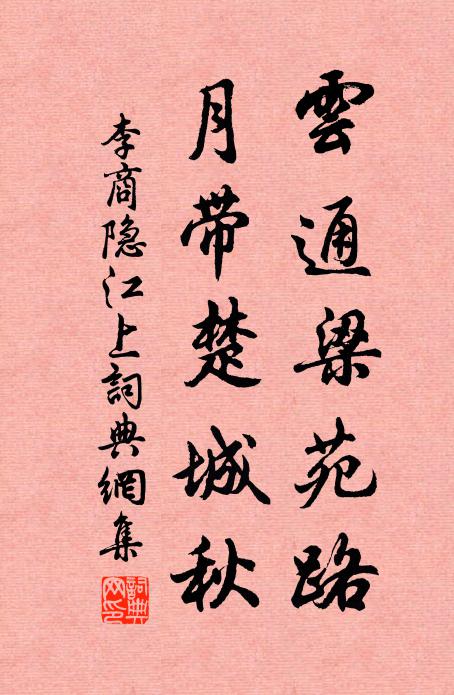 雲通梁苑路
月带楚城秋
李商隐江上詞典網集
詞典網印